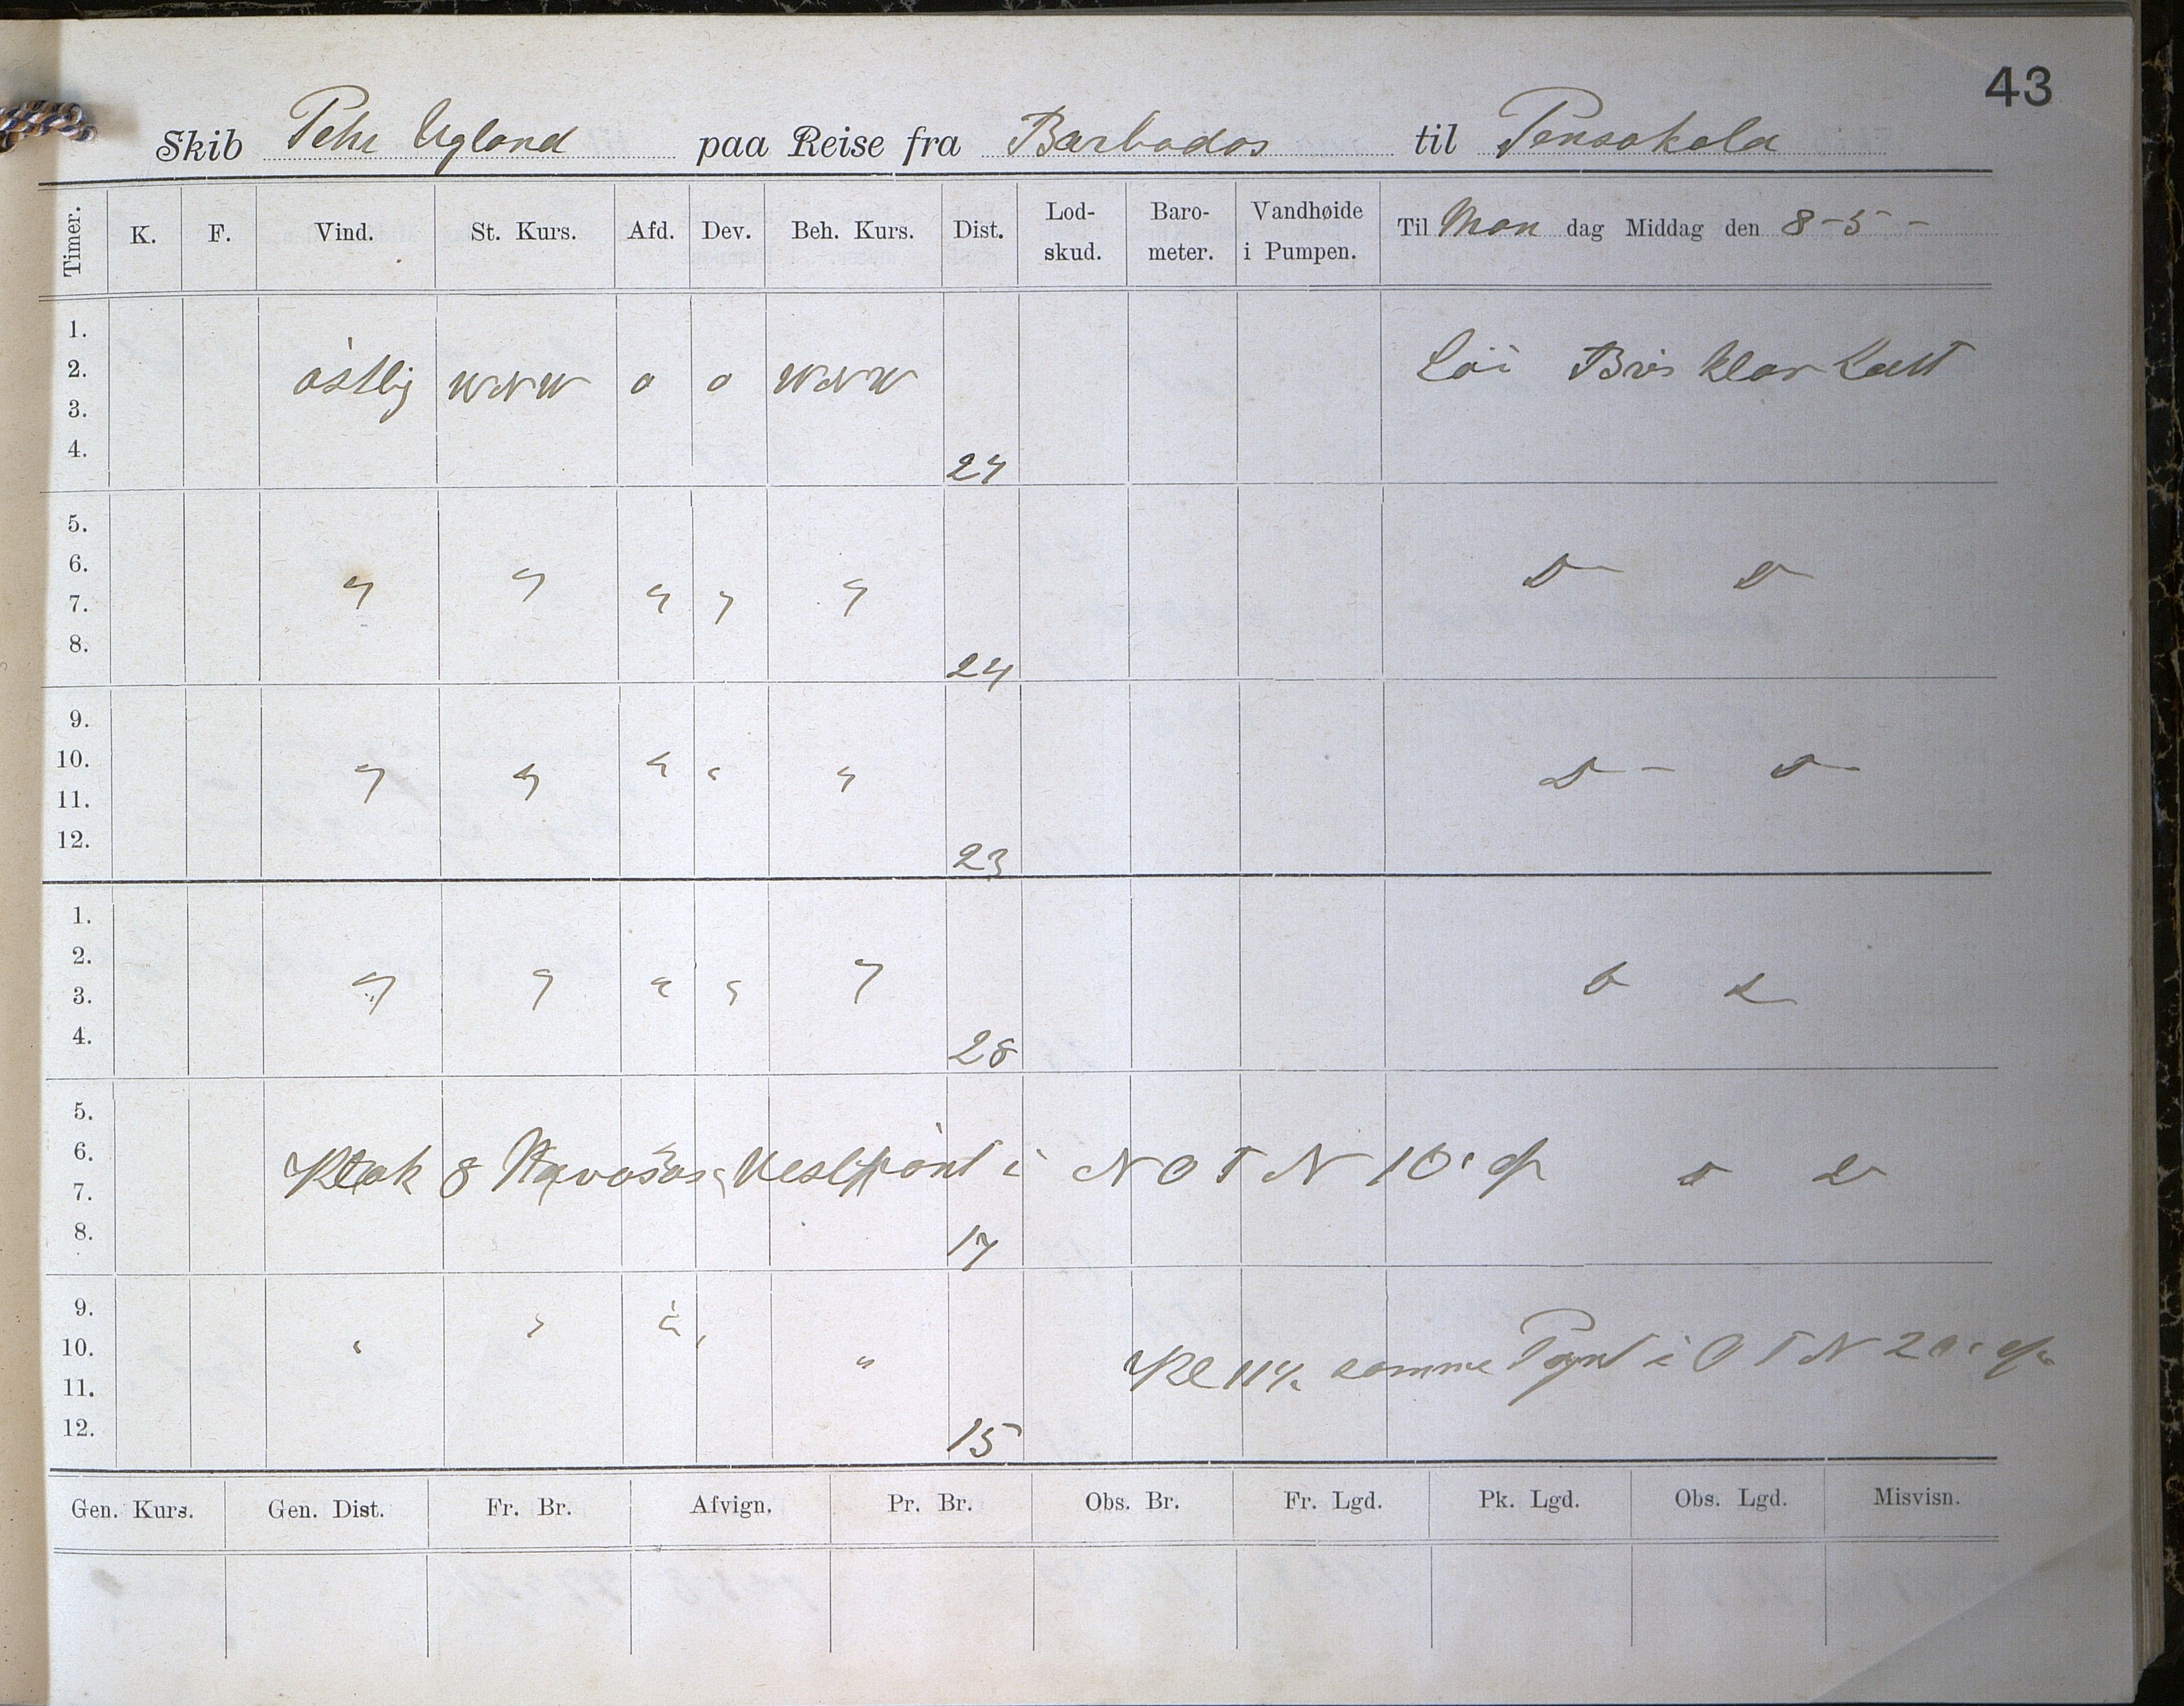 43
Skib Pehr Ugland paa Reise fra Barbados til Pensakola
Timer. K. F. Vind. St. Kurs. Afd. Dev. Beh. Kurs. Dist. Lod-skud. Baro-meter. Vandhøide i Pumpen. Til Man dag Middag den 8-5-
1.
2. östlig WNW o o WNW Löi Bris klar Luft
3.
4. 24
5.
6. D D
7. " " " " "
8. 24
9.
10. " " " " " D - D
11.
12. 23
1.
2.
3. " " " " " D D
4. 28
5.
6. Klok 8 Navasas Vestpönt i NOTN 10' af D D
7.
8. 17
9.
10. " " " " " Kl 11½ samme Pynt i OTN 20' af
11.
12. 15
Gen. Kurs. Gen. Dist. Fr. Br. Afvign. Pr. Br. Obs. Br. Fr. Lgd. Pk. Lgd. Obs. Lgd. Misvisn.